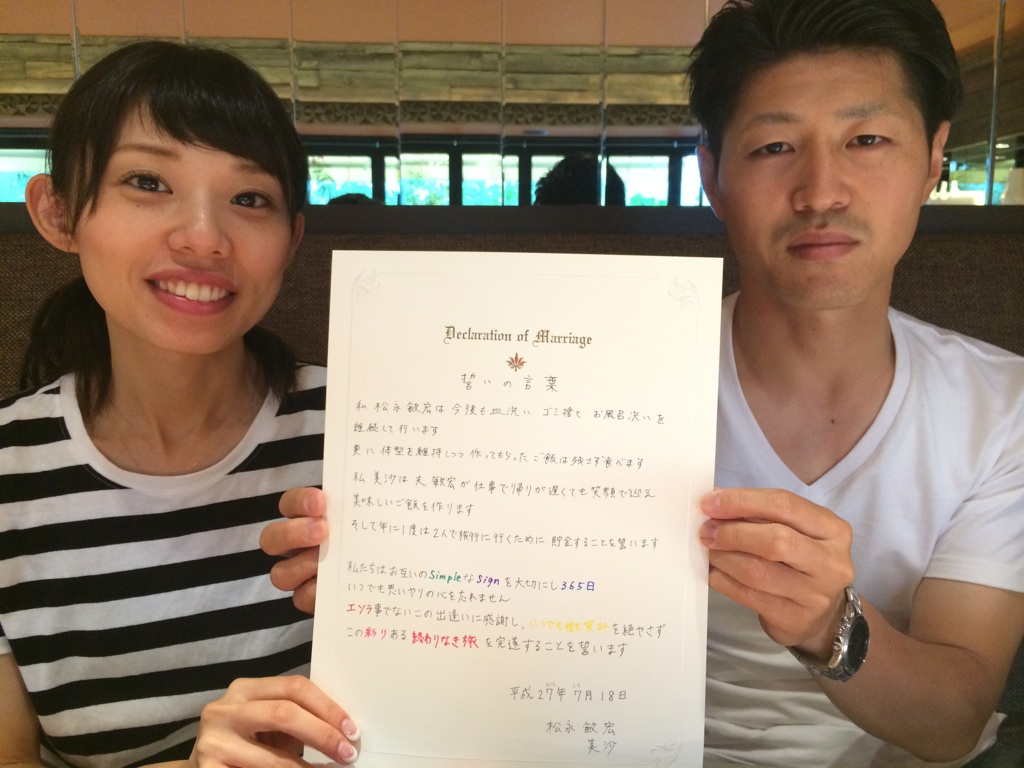 Declaration of Marriage
誓いの言葉
私 松永敏宏は今後も皿洗い ゴミ捨て お風呂洗いを
継続して行います
更に 体型を維持しつつ 作ってもらったご飯は残さず食べます
私 美沙は夫 敏宏が仕事で帰りが遅くても笑顔で迎え
美味しいご飯を作ります
そして年に1度は2人で旅行に行くために 貯金することを誓います
私たちはお互いのSimpleなSignを大切にし365日
いつでも思いやりの心を忘れません
エソラ事でないこの出逢いに感謝し、いつでも微笑みを絶やさず
この彩りある 終わりなき旅 を完遂することを誓います
平成27年7月18日
松永 敏宏
美沙